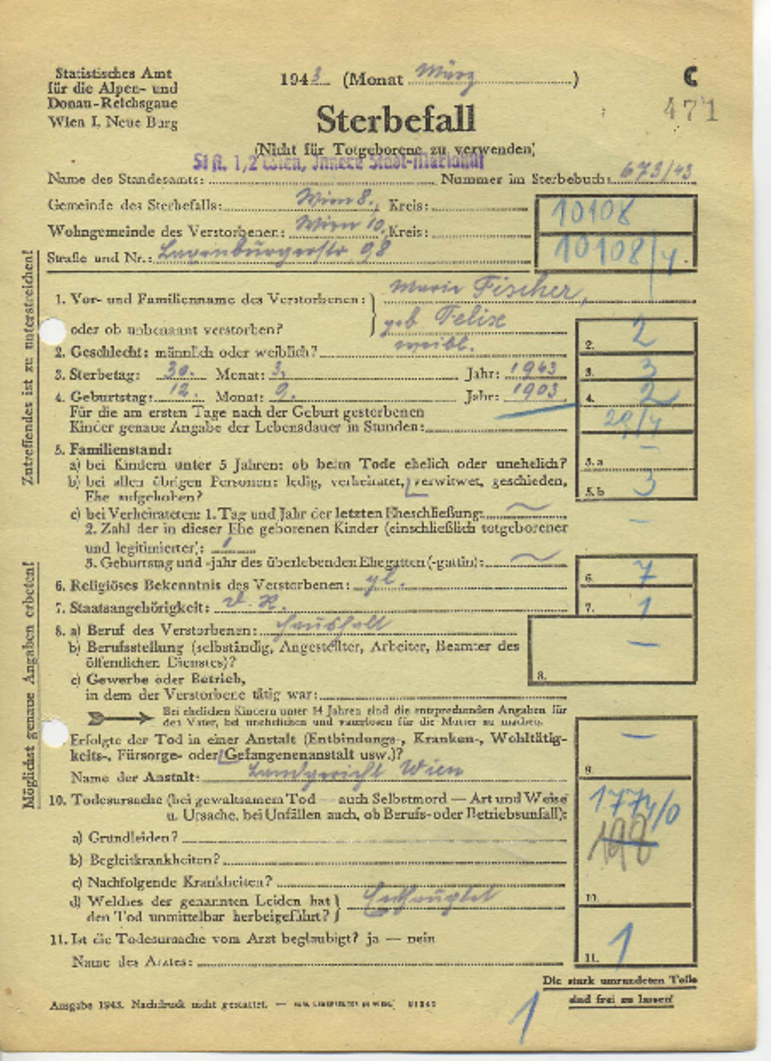 Statistisches Amt
für die Alpen- und
Donau-Reichsgaue
Wien I, Neue Burg
1943 (Monat März)
C
471
Sterbefall
(Nicht für Totgeborene zu verwenden)
St A. 1, Wien, Innere Stadt-Mariahilf
Name des Standesamts: Nummer im Sterbebuch: 673/43
Gemeinde des Sterbefalls: Wien 8., Kreis:
10108
Wohngemeinde des Verstorbenen: Wien 10, Kreis:
10108/4
Straße und Nr.: Laxenburgerstr 98
Zutreffendes ist zu unterstreichen!
1. Vor- und Familienname des Verstorbenen: Marie Fischer,
oder ob unbenannt verstorben? geb
2. Geschlecht: männlich oder weiblich? weibl.
2. 2
3. Sterbetag: 30. Monat: 3. Jahr: 1943
3. 3
4. Geburtstag: 12. Monat: 9. Jahr: 1903
4. 2
Für die am ersten Tage nach der Geburt gestorbenen
Kinder genaue Angabe der Lebensdauer in Stunden:
29/4
5. Familienstand:
a) bei Kindern unter 5 Jahren: ob beim Tode ehelich oder unehelich?
5. a –
b) bei allen übrigen Personen: ledig, verheiratet, verwitwet, geschieden,
Ehe aufgehoben?
5. b 3
c) bei Verheirateten: 1. Tag und Jahr der letzten Eheschließung:
2. Zahl der in dieser Ehe geborenen Kinder (einschließlich totgeborener
und legitimierter):
3. Geburtstag und -jahr des überlebenden Ehegatten (-gattin):
Möglichst genaue Angaben erbeten!
6. Religiöses Bekenntnis des Verstorbenen: gl.
6. 7
7. Staatsangehörigkeit: D. R.
7. 1
8. a) Beruf des Verstorbenen: Haushalt
b) Berufsstellung (selbständig, Angestellter, Arbeiter, Beamter des
öffentlichen Dienstes)?
8. –
c) Gewerbe oder Betrieb,
in dem der Verstorbene tätig war:
Bei ehelichen Kindern unter 14 Jahren sind die entsprechenden Angaben für
den Vater, bei unehelichen und vaterlosen für die Mutter zu machen.
Erfolgte der Tod in einer Anstalt (Entbindungs-, Kranken-, Wohltätig-
keits-, Fürsorge- oder Gefangenenanstalt usw.)?
Name der Anstalt: Landgericht Wien
9. –
10. Todesursache (bei gewaltsamem Tod — auch Selbstmord — Art und Weise
u. Ursache, bei Unfällen auch, ob Berufs- oder Betriebsunfall):
1774/0
198
a) Grundleiden?
b) Begleitkrankheiten?
c) Nachfolgende Krankheiten?
d) Welches der genannten Leiden hat
den Tod unmittelbar herbeigeführt? Enthauptet
10.
11. Ist die Todesursache vom Arzt beglaubigt? ja — nein
Name des Arztes:
11. 1
Die stark umrandeten Teile
sind frei zu lassen!
Ausgabe 1943. Nachdruck nicht gestattet. —
1